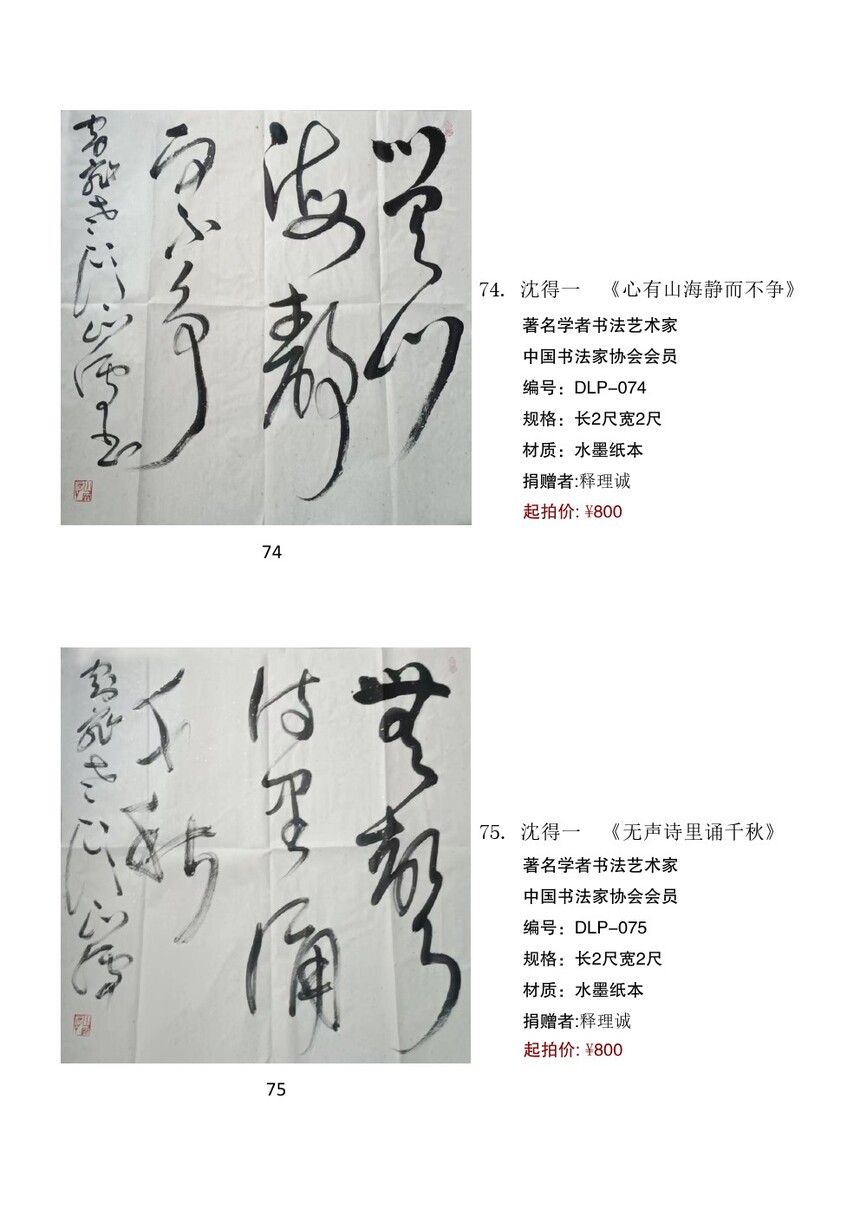 心有山
海静
而不争
74
74. 沈得一 《心有山海静而不争》
著名学者书法艺术家
中国书法家协会会员
编号：DLP-074
规格：长2尺宽2尺
材质：水墨纸本
捐赠者:释理诚
起拍价: ¥800
無聲
诗里诵
千秋
75
75. 沈得一 《无声诗里诵千秋》
著名学者书法艺术家
中国书法家协会会员
编号：DLP-075
规格：长2尺宽2尺
材质：水墨纸本
捐赠者:释理诚
起拍价: ¥800